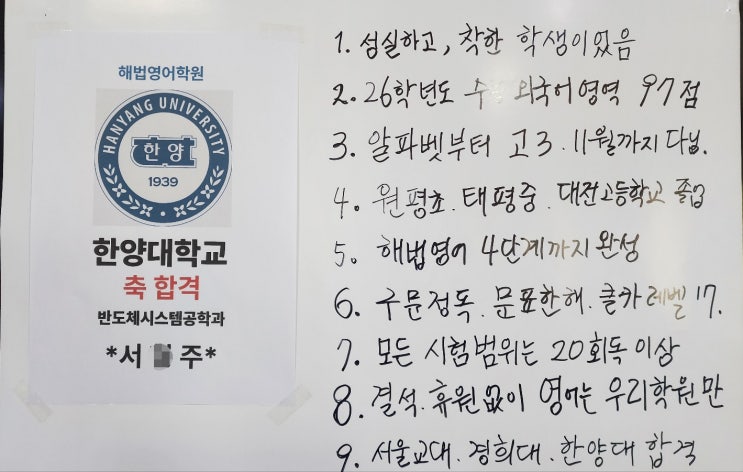 해법영어학원
HANYANG UNIVERSITY
한양
1939
한양대학교
축 합격
반도체시스템공학과
*서 주*
1. 성실하고, 착한 학생이었음
2. 26학년도 외국어영역 97점
3. 알파벳부터 고3. 11월까지 다님.
4. 원평초. 태평중. 대전고등학교 졸업
5. 해법영어 4단계까지 완성
6. 구문정독. 문표한해. 클카 레벨 17.
7. 모든 시험범위는 20회독 이상
8. 결석. 휴원 없이 영어는 우리학원만
9. 서울교대. 경희대. 한양대 합격